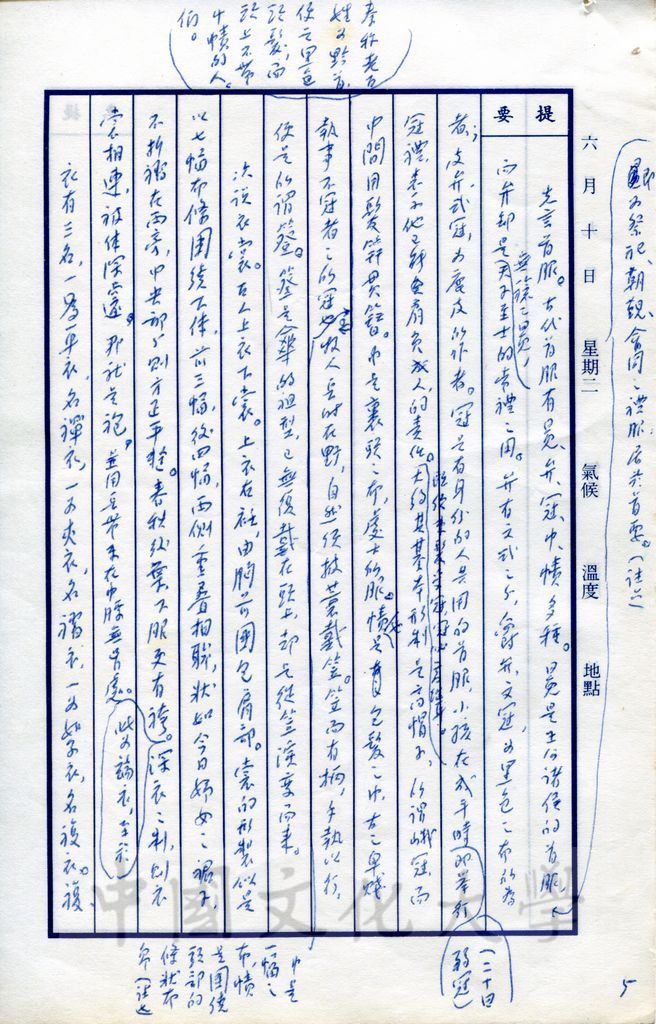 六月十日 星期二 氣候 溫度 地點
提要
先言首服。古代首服有冕、弁、冠、巾、幘多種。冕是王公諸侯的首服，
即為祭祀、朝覲、會同之禮服，居於首要。（註二）
無旒之冕，
而弁卻是天子至士的常禮之用。弁有文武之分，爵弁，文冠，為黑色之布所為
者；皮弁，武冠，為鹿皮所作者。冠是有身份的人共用的首服，小孩在成年時即舉行
（二十曰弱冠）
冠禮，表示他已
負成人的責任。
其基本形制是高帽子，所謂峨冠，而
中間用髮笄貫簪。巾是裹頭之布，處士所服。幘是有包髮之巾，古之卑賤
執事不冠者之所冠也。牧人
在野，自然須披蓑戴笠。笠而有柄，手執以行，
便是所謂簦。簦是傘的祖型，已無復戴在頭上，卻是從笠演變而來。
次說衣裳。古人上衣下裳。上衣右衽，由胸前圍包肩部。裳的形製似是
以七幅布條圍繞下体，前三幅，後四幅，兩側重疊相聯，狀如今日婦女之裙子，
不折襉在兩旁，中央部分則方正平整。春秋後葉下服更有袴。深衣之制，則衣
裳相連，被体深邃，那就是袍，並用
帶束在中腰無
處。
此為
衣，至於
衣有三名，一為單衣，名襌衣，一為夾衣，名褶衣，一為絮衣，名複衣。複
秦稱老百
姓為黔首，
便是黑色
頭髮，而
頭上不帶
巾幘的人
們。
巾是
一幅之
布，幘
是圍繞
頭部的
條狀布
帛（註
5
中國文化大學